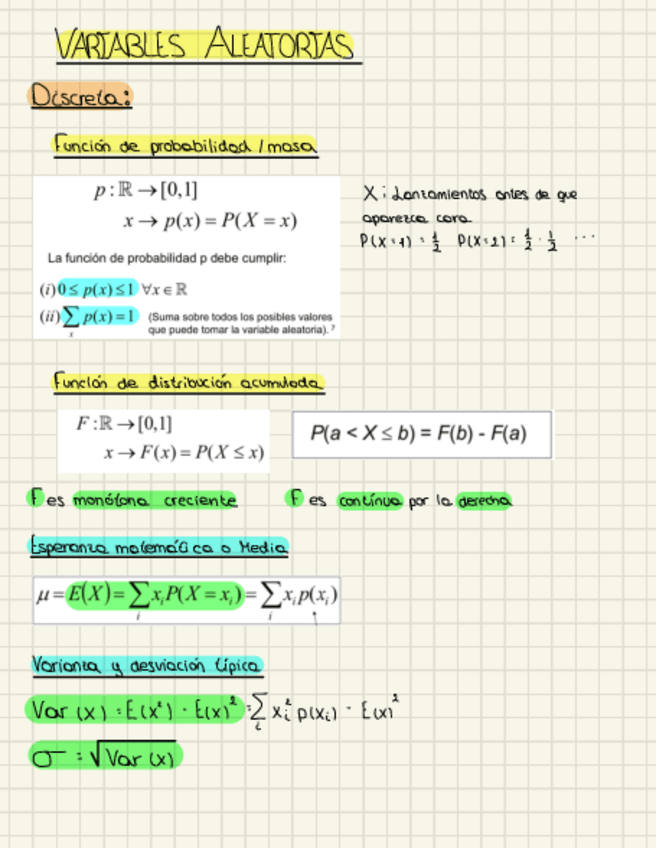 VARIABLES ALEATORIAS
Discreta:
Función de probabilidad / masa
p : ℝ → [0,1]
x → p(x) = P(X = x)
La función de probabilidad p debe cumplir:
(i) 0 ≤ p(x) ≤ 1 ∀x ∈ ℝ
(ii) ∑x p(x) = 1 (Suma sobre todos los posibles valores
que puede tomar la variable aleatoria). 7
X: Lanzamientos antes de que
aparezca cara
P(X=1) = 1/2 P(X=2) = 1/2 · 1/2 ...
Función de distribución acumulada
F : ℝ → [0,1]
x → F(x) = P(X ≤ x)
P(a < X ≤ b) = F(b) - F(a)
F es monótona creciente F es contínua por la derecha
Esperanza matemática o Media
μ = E(X) = ∑i xi P(X = xi) = ∑i xi p(xi)
Varianza y desviación típica
Var (x) = E(x²) - E(x)² = ∑i xi² p(xi) - E(x)²
σ = √Var (x)